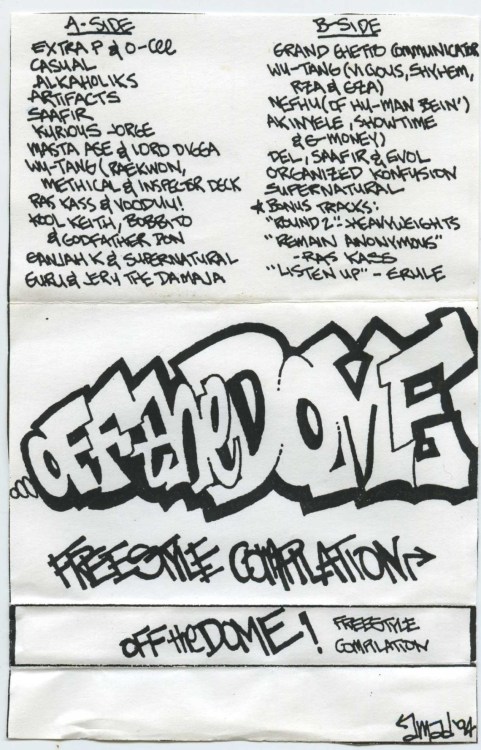 A-SIDE
EXTRA P & O-Cee
CASUAL
ALKAHOLIKS
ARTIFACTS
SAAFIR
KURIOUS JORGE
MASTA ASE & LORD DIGGA
WU-TANG (RAEKWON,
METHICAL & INSPECTER DECK
RAS KASS & VOODUU!
KOOL KEITH, BOBBITO
& GODFATHER DON
GANJAH K & SUPERNATURAL
GURU & JERU THE DAMAJA
B-SIDE
GRAND GHETTO COMMUNICATOR
WU-TANG (VICIOUS, SHYHEM,
RZA & GZA)
NEFHU (OF HU-MAN BEIN')
AKINYELE, SHOWTIME
& G-MONEY)
DEL, SAAFIR & EVOL
ORGANIZED KONFUSION
SUPERNATURAL
* BONUS TRACKS:
"ROUND 2" - HEAVYWEIGHTS
"REMAIN ANONYMOUS"
- RAS KASS
"LISTEN UP" - ERULE
...OFF the DOME
FREESTYLE COMPILATION
OFF the DOME! FREESTYLE
COMPILATION
'94